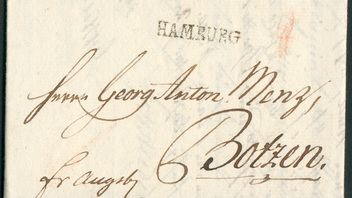 HAMBURG
Herrn Georg Anton Menz,
Botzen.
fr Augsb